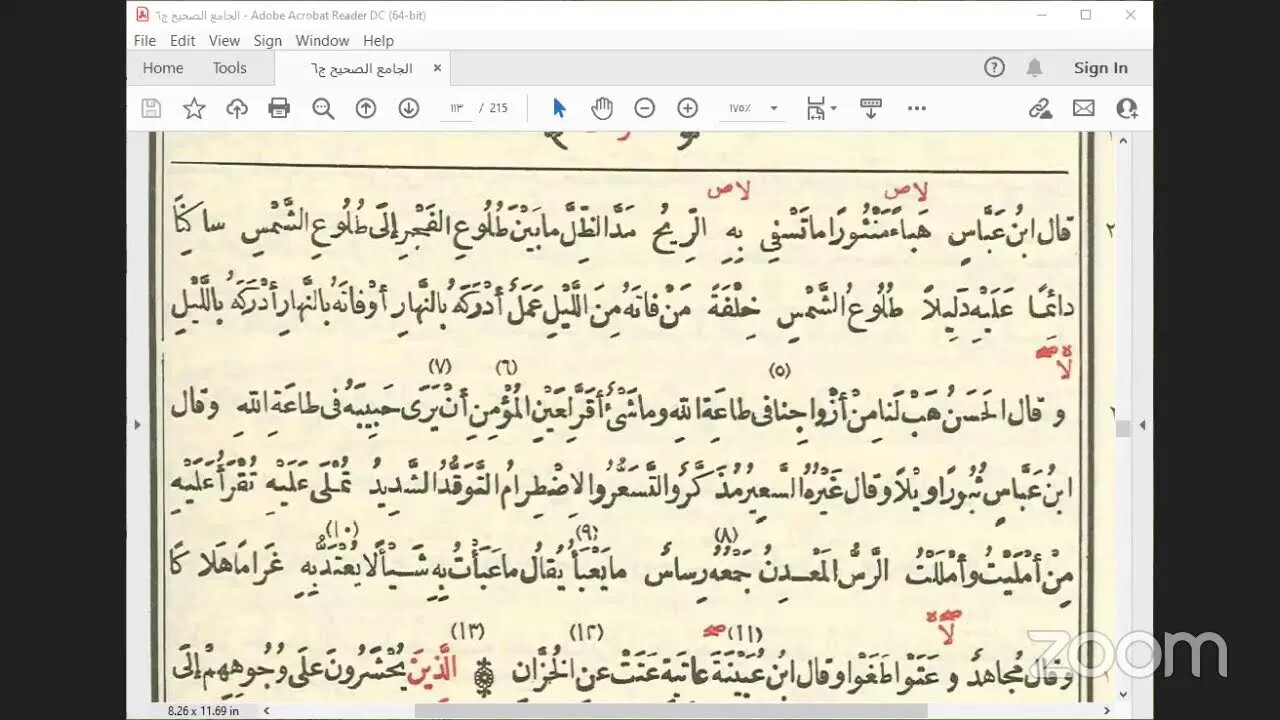 الجامع الصحيح ج٦ - Adobe Acrobat Reader DC (64-bit)
File Edit View Sign Window Help
Home Tools الجامع الصحيح ج٦ × Sign In
١١٣ / 215 ١٧٥٪
لاص لاص
قال ابنُ عَبَّاسٍ هَبَاءً مَنْثُورًا ما تَسْفِي بِهِ الرِّيحُ مَدَّ الظِّلَّ ما بَيْنَ طُلُوعِ الفَجْرِ إلَى طُلُوعِ الشَّمْسِ ساكِنًا
دائِمًا عَلَيْهِ دَلِيلًا طُلُوعُ الشَّمْسِ خِلْفَةً مَنْ فاتَهُ مِنَ اللَّيْلِ عَمَلٌ أَدْرَكَهُ بالنَّهارِ أَوْ فاتَهُ بالنَّهارِ أَدْرَكَهُ بِاللَّيْلِ
لا
(٥) (٦) (٧)
وقال الحَسَنُ هَبْ لَنا مِنْ أَزْواجِنا فى طاعَةِ اللهِ وما شَىْءٌ أَقَرَّ لِعَيْنِ المُؤْمِنِ أَنْ يَرَى حَبِيبَهُ فى طاعَةِ اللهِ وقال
ابنُ عَبَّاسٍ ثُبُورًا وَيْلًا وقال غَيْرُهُ السَّعِيرُ مُذَكَّرٌ والتَّسَعُّرُ والاِضْطِرامُ التَّوَقُّدُ الشَّدِيدُ تُمْلَى عَلَيْهِ تُقْرَأُ عَلَيْهِ
(٨) (٩) (١٠)
مِنْ أَمْلَيْتُ وأَمْلَلْتُ الرَّسُّ المَعْدِنُ جَمْعُهُ رِساسٌ ما يَعْبَأُ يُقالُ ما عَبَأْتُ بِهِ شَيْأً لا يُعْتَدُّ بِهِ غَرامًا هَلاكًا
لا (١١) (١٢) (١٣)
وقال مُجاهِدٌ وعَتَوْا طَغَوْا وقال ابنُ عُيَيْنَةَ عاتِيَةٍ عَتَتْ عنِ الخُزَّانِ الَّذِينَ يُحْشَرُونَ عَلَى وُجُوهِهِمْ إلَى
8.26 x 11.69 in
zoom